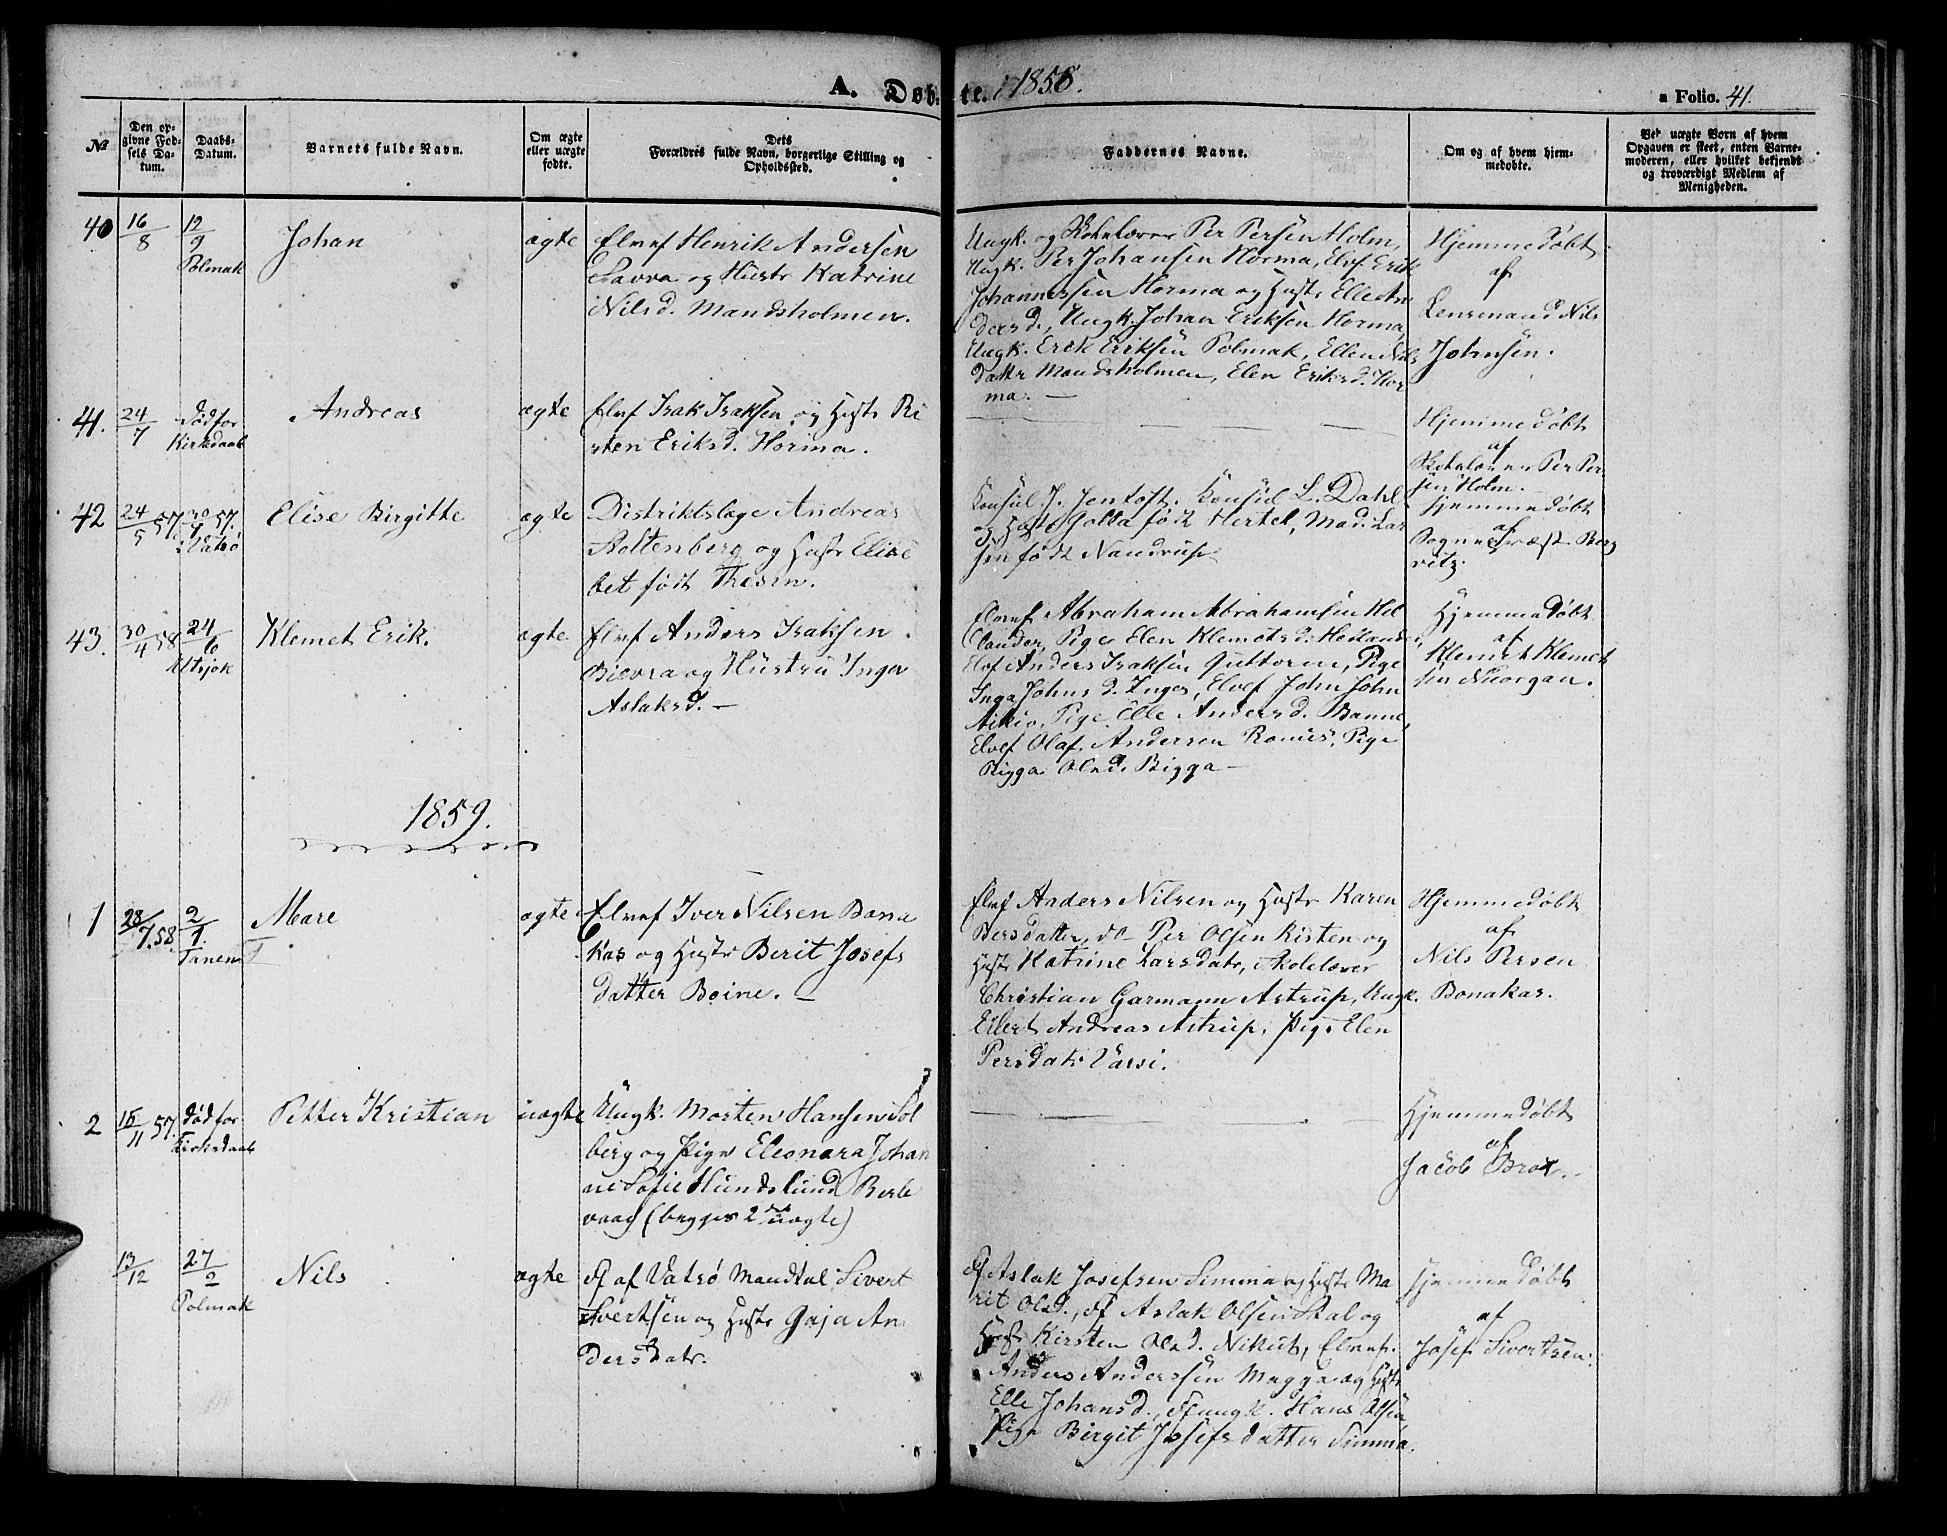 A. Døbte i 1858.
a Folio. 41.
№
Den opgivne Fødsels Datum.
Daabs-Datum.
Barnets fulde Navn.
Om ægte eller uægte fødte.
Dets Forældres fulde Navn, borgerlige Stilling og Opholdssted.
Faddernes Navne.
Om og af hvem hjemmedøbte.
Ved uægte Børn af hvem Opgaven er skeet, enten Barnemoderen, eller hvilket bekjendt og troværdigt Medlem af Menigheden.
40
16/8
12/9
Polmak
Johan
ægte
Elvef Henrik Andersen
Savva og Hustr Katrine
Nilsd. Mandsholmen.
Ungk. og Skolelærer Per Persen Holm,
Ungk. Per Johansen Horma, Elvf Erik
Johannessen Horma og Hustr Elle An
dersd., Ungk. Johan Eriksen Horma
Ungk. Erik Eriksen Polmak, Ellen Nils
datter Mandsholmen, Elen Eriksd. Hor
ma. —
Hjemmedøbt
af
Lensmand Nils
Johnsen.
41.
24/7
død for
Kirkedaab
Andreas
ægte
Elvf Isak Isaksen og Hustr Ki
rsten Eriksd. Horma.
Hjemmedøbt
af
Skolelærer Per Per
sen Holm.
42
24/5 57.
30/7 57.
Vadsø
Elise Birgitte
ægte
Distriktslæge Andreas
Stoltenberg og Hustr Elisa
bet født Thesen.
Konsul J. Jentoft, Konsul L. Dahl
og Hustr Golla født Hertel, Mad. Lar
sen født Nandrup.
Hjemmedøbt
af
Sognepræst Borg
vitz.
43.
30/4 58
24/6
Utsjok
Klemet Erik.
ægte
Elvef Anders Isaksen
Bievra og Hustru Inga
Aslaksd. —
Elvef Abraham Abrahamsen Hel
lander, Pige Elen Klemetsd. Helland
Elvf Anders Isaksen Guttorm, Pige
Inga Johns d. Inges, Elvef John John
Aikio, Pige Elle Andersd. Banne,
Elvef Olaf Andersen Ronus, Pige
Rigga Olsd. Bigga —
Hjemmedøbt
af
Klemet Klemet
sen Nuorgan.
1859.
1
28/7.58
2/1.
Tanen
Mare
ægte
Elvef Iver Nilsen Bona
kas og Hustr Berit Josefs
datter Boine. —
Elvf Anders Nilsen og Hustr Karen
Persdatter, do Per Olsen Kisten og
Hustr Katrine Larsdatr, Skolelærer
Christian Garmann Astrup, Ungk.
Eilert Andreas Astrup, Pige Elen
Persdatr Varsi.
Hjemmedøbt
af
Nils Persen
Bonakas.
2
18/11 57.
død for
Kirkedaab
Petter Kristian
uægte
Ungk. Morten Hansen Sol
berg og Pige Eleonora Johan
ne Sofie Hundslund Berle
vaag (begges 2det uægte)
Hjemmedøbt
af
Jacob Brox.
13/12
27/2
Polmak
Nils
ægte
Ff af Vadsø Mandtal Sivert
Sivertsen og Hustr Gaja An
dersdatr.
Ff Aslak Josefsen Simma og Hustr Ma
rit Olsd., Ff Aslak Olsen Skal og
Hustr Kirsten Olsd. Nikut, Elvef.
Anders Anderssen Magga og Hustr
Elle Johansd., Ff ungk. Hans Olsen
Pige Birgit Josefsdatter Simma.
Hjemmedøbt
af
Josef Sivertsen.